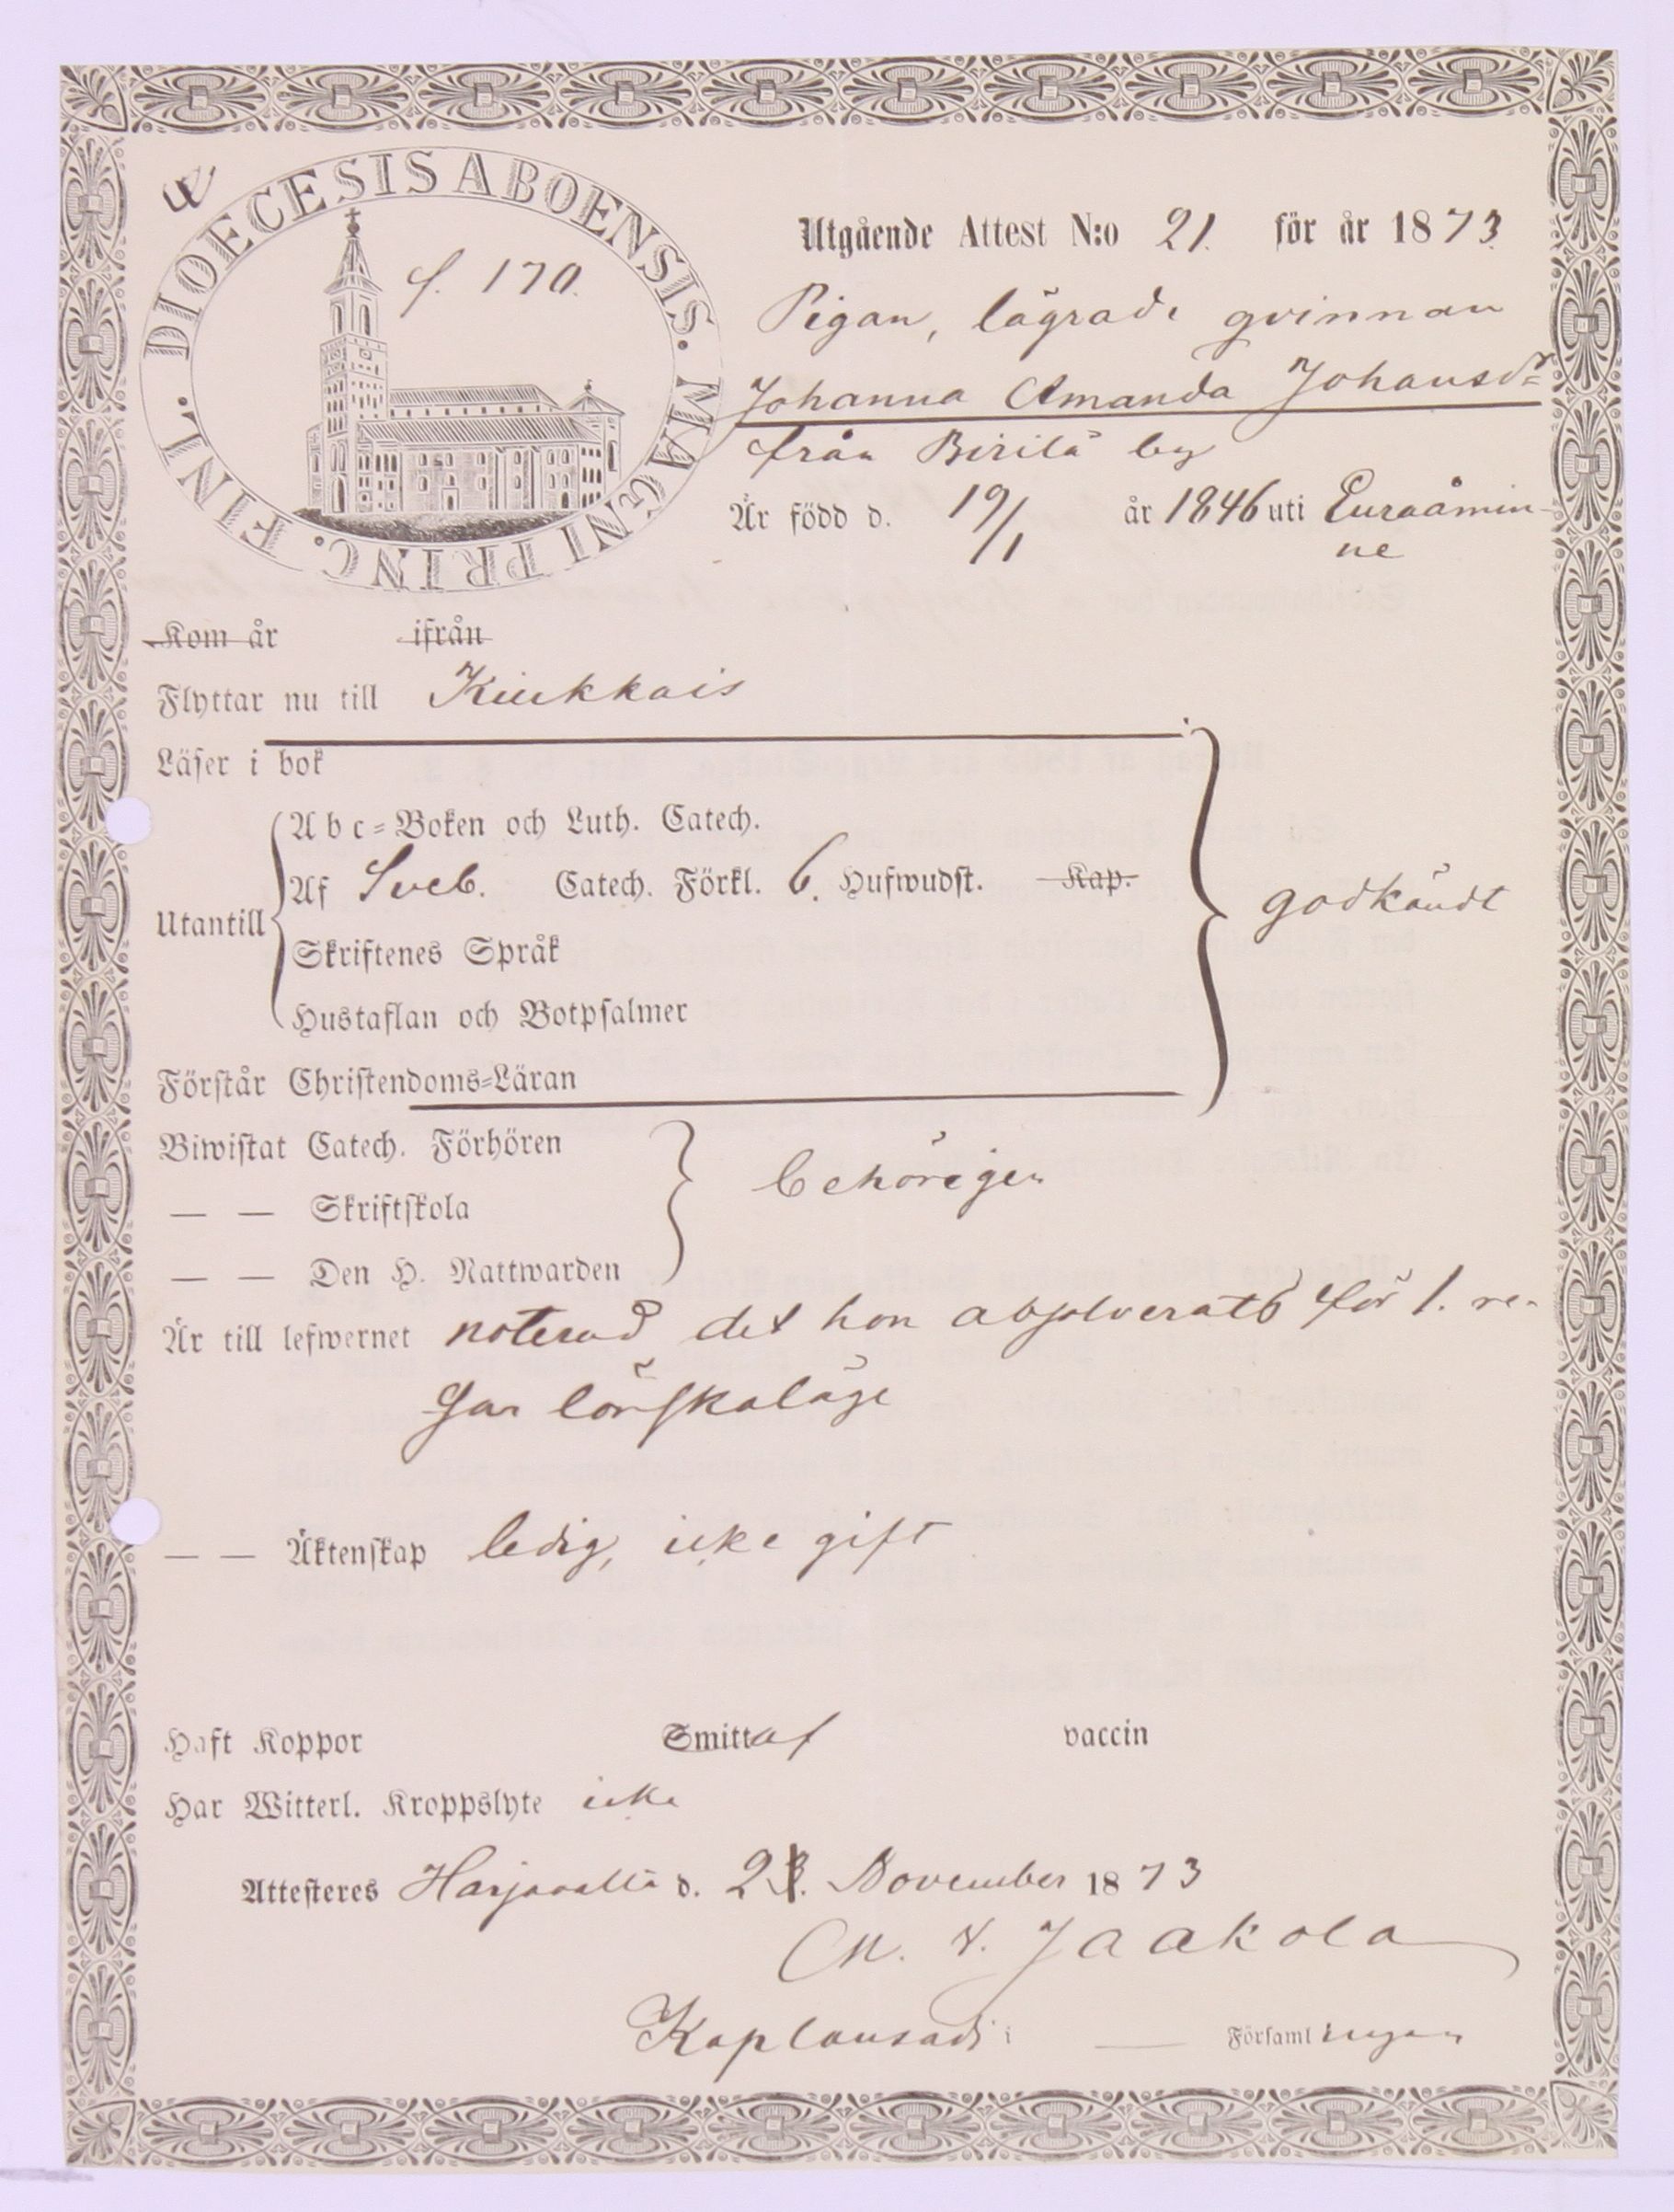 DIOECESIS ABOENSIS. MAGNI PRINC. FINL.
f. 170.
Utgående Attest N:o 21. för år 1873.
Pigan, lägrade qvinnan
Johanna Amanda Johansdr
från Birilä by
Är född d. 19/1 år 1846 uti Euraåmin-
ne
Kom år ifrån
Flyttar nu till Kiukkais
Läser i bok
Abc=Boken och Luth. Catech.
Utantill Af Sveb. Catech. Förkl. 6. Hufwudst. Kap. godkändt
Skriftenes Språk
Hustaflan och Botpsalmer
Förstår Christendoms=Läran
Biwistat Catech. Förhören
— — Skriftskola behörigen
— — Den H. Nattwarden
Är till lefwernet noterad det hon absolverats för 1. re-
san lönskaläge
— — Äktenskap ledig, icke gift
Haft Koppor Smittaf vaccin
Har Witterl. Kroppslyte icke
Attesteres Harjavalta d. November 1873
Jaakola
Kaplansadj. i — Församlingen